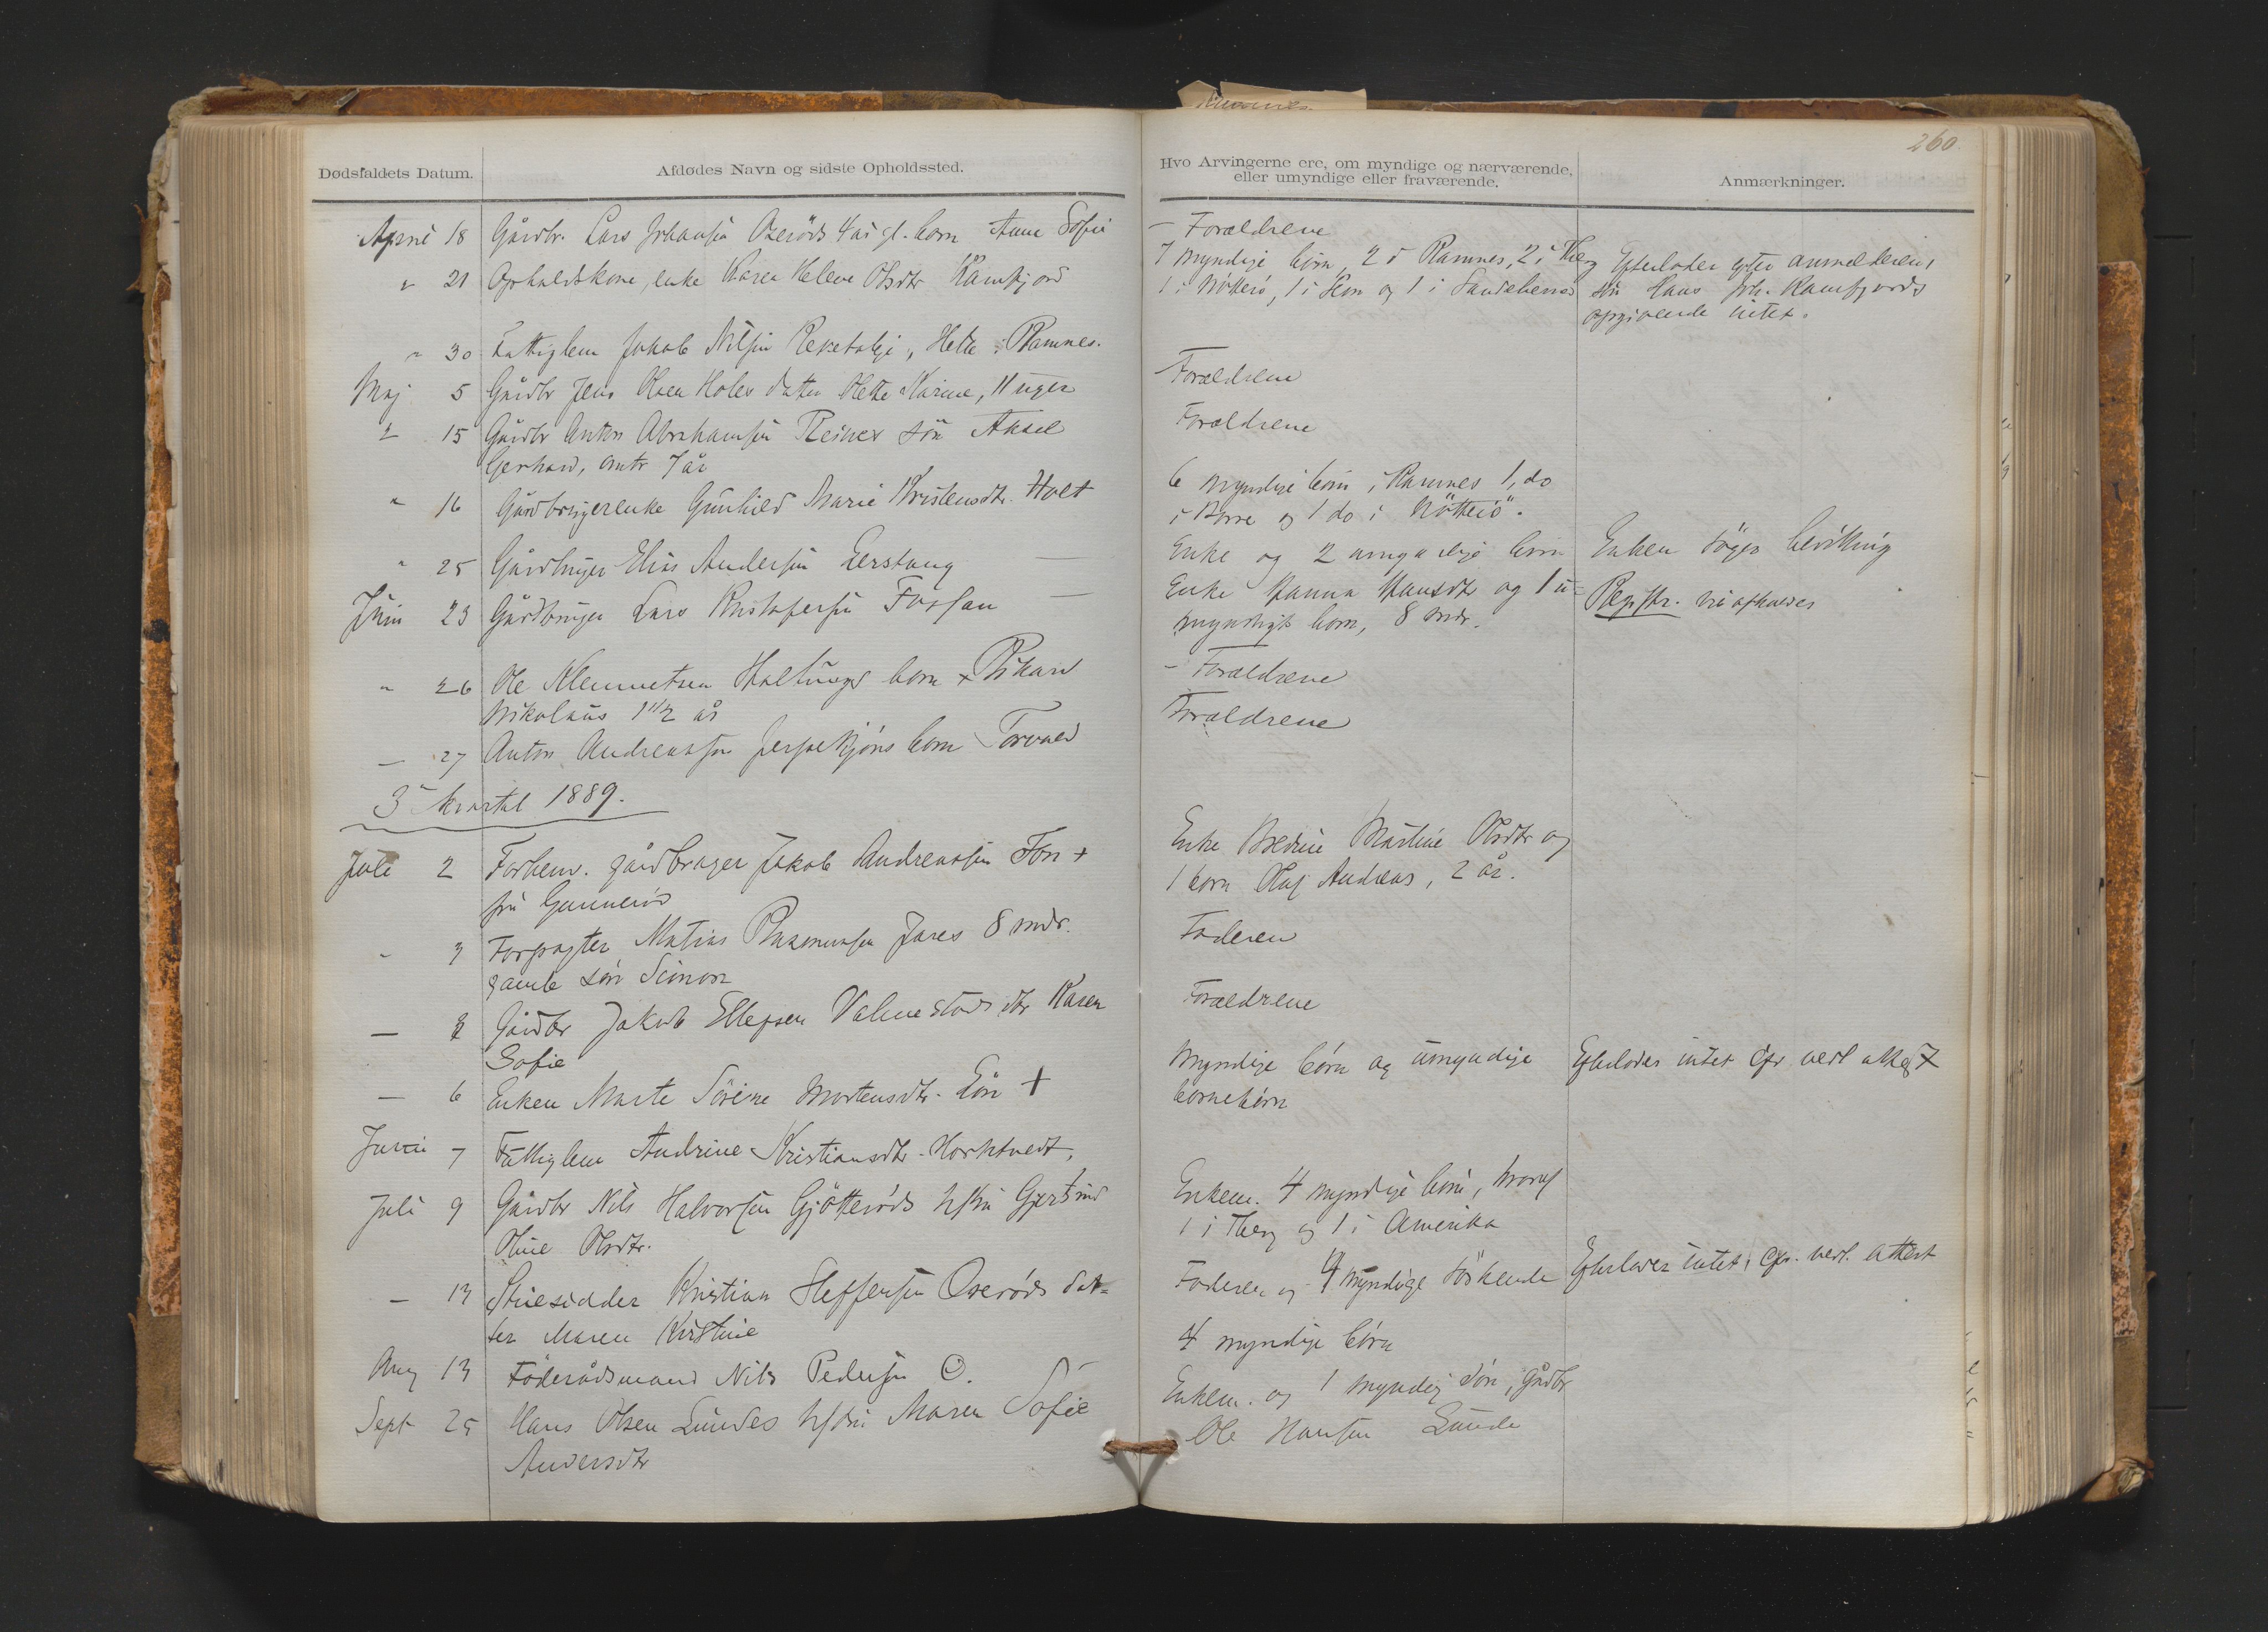 260
Dødsfaldets Datum.
Afdødes Navn og sidste Opholdssted.
April 18 Gårdbr. Lars Johansen Oserøds 4 år gl. barn Anne Sofie
" 21 Opholdskone, enke Karen Helene Olsdtr Ramfjord
" 30 Fattiglem Jakob Nilsen , Helle i Ramnes.
Maj 5 Gårdbr Jens Olsen Holes datter Olette Karine, 11 uger
" 15 Gårdbr Anton Abrahamsen søn Aksel
Gerhard, omtr 7 år
" 16 Gårdbrugerenke Gunhild Marie Kristensdtr. Holt
" 25 Gårdbruger Elias Andersen
Juni 23 Gårdbruger Lars Kristofersen Fossan
" 26 Ole Klemmetsen barn + Rikard
Nikolaus 1 1/2 år
— 27 Anton Andreassen barn Torvald
3. Kvartal 1889.
Juli 2 Forhenv. gårdbruger Jakob Andreassen Fon +
fra Gunnerød
" 3 Forpagter Matias Rasmussen Jares 8 mdr.
gamle søn Simon
— Gårdbr Jakob Ellefsen dtr Karen
Sofie
— 6 Enken Marte Sørine Mortensdtr. +
Juni 7 Fattiglem Andrine Kristiansdtr.
Juli 9 Gårdbr Nils Halvorsen Gjøtterøds hstru
Oline Olsdtr.
— 13 Kristian Steffensen Oserøds dat-
ter Maren Kirstine
Aug 13 Føderådsmand Nils Pedersen
Sept 25 Hans Olsen Lundes hstru Maren Sofie
Andersdtr
Hvo Arvingerne ere, om myndige og nærværende,
eller umyndige eller fraværende.
Anmærkninger.
- Forældrene
7 myndige børn, 2 i Ramnes, 2 i Tbrg
1 i Nøtterø, 1 i Sem og 1 i Sandeherred
Efterlader efter anmelderens
søn Hans Joh. Ramfjords
opgivende intet.
Forældrene
Forældrene
6 myndige børn i Ramnes 1, do
i Borre og 1 do i Nøtterö.
Enke og 2 umyndige børn
Enken søger bevilling
Enke Hanna Hansdtr og 1 u-
myndigt barn, 8 mdr.
Registr. vil afholdes
- Forældrene
Forældrene
Enke Martine Olsdtr og
1 barn Olaf Andreas, 2 år.
Faderen
Forældrene
Myndige børn og umyndige
børnebørn
Efterlader intet cfr vedl attest
Enkem. 4 myndige børn, hvoraf
1 i Tbrg og 1 i Amerika
Faderen og 4 myndige søskende
Efterlader intet, cfr. vedl. attest
4 myndige børn
Enkem. og 1 myndig søn, gårdbr
Ole Hansen Lunde